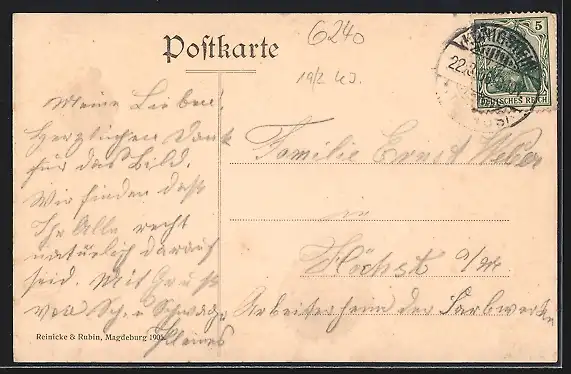 Postkarte
6240
19/2 KJ.
KÖNIGSTEIN
22.
5
DEUTSCHES REICH
Meine Lieben!
Herzlichen Dank
für das Bild.
Wir finden daß
Ihr Alle recht
natürlich darauf
seid. Mit Gruß
von Sch. u. Schwager
Familie Ernst Weber
in
Höchst a/M.
Arbeiterheim der Farbwerken
Reinicke & Rubin, Magdeburg 190